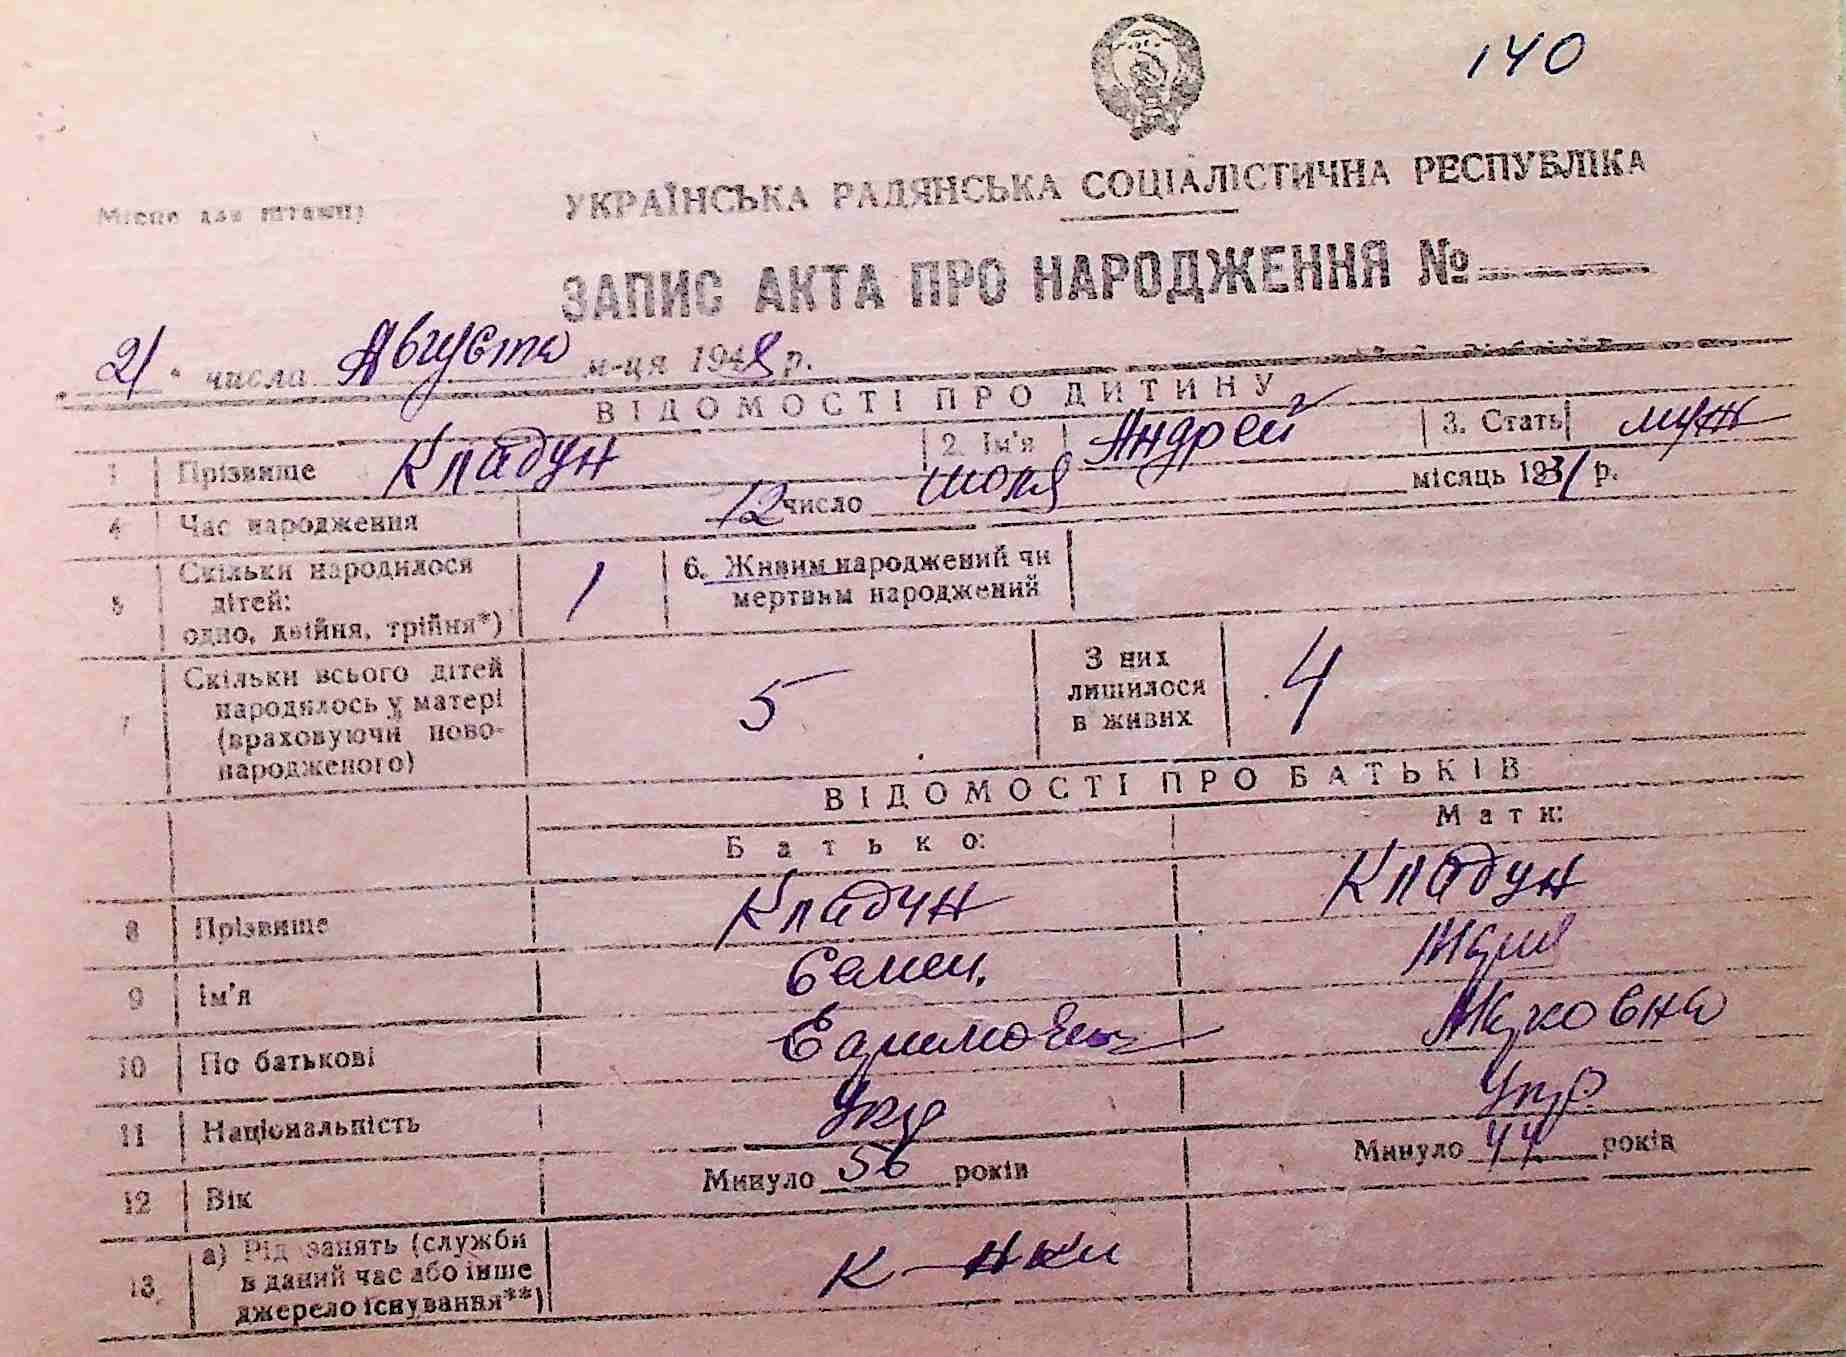 140
Місце для штампу
УКРАЇНСЬКА РАДЯНСЬКА СОЦІАЛІСТИЧНА РЕСПУБЛІКА
ЗАПИС АКТА ПРО НАРОДЖЕННЯ №
"21" числа Августа м-ця 1948 р.
ВІДОМОСТІ ПРО ДИТИНУ
1 Прізвище Кладун 2. Ім'я Андрей 3. Стать муж
4 Час народження 12 число июля місяць 1931 р.
5 Скільки народилося дітей: одно, двійня, трійня*) 1 6. Живим народжений чи мертвим народжений
7 Скільки всього дітей народилось у матері (враховуючи новонародженого) 5 З них лишилося в живих 4
ВІДОМОСТІ ПРО БАТЬКІВ
Батько: Мати:
8 Прізвище Кладун Кладун
9 Ім'я Семен Мария
10 По батькові
11 Національність Укр Укр.
12 Вік Минуло 56 років Минуло 44 років
13 а) Рід занять (служби в даний час або інше джерело існування**) к-нки